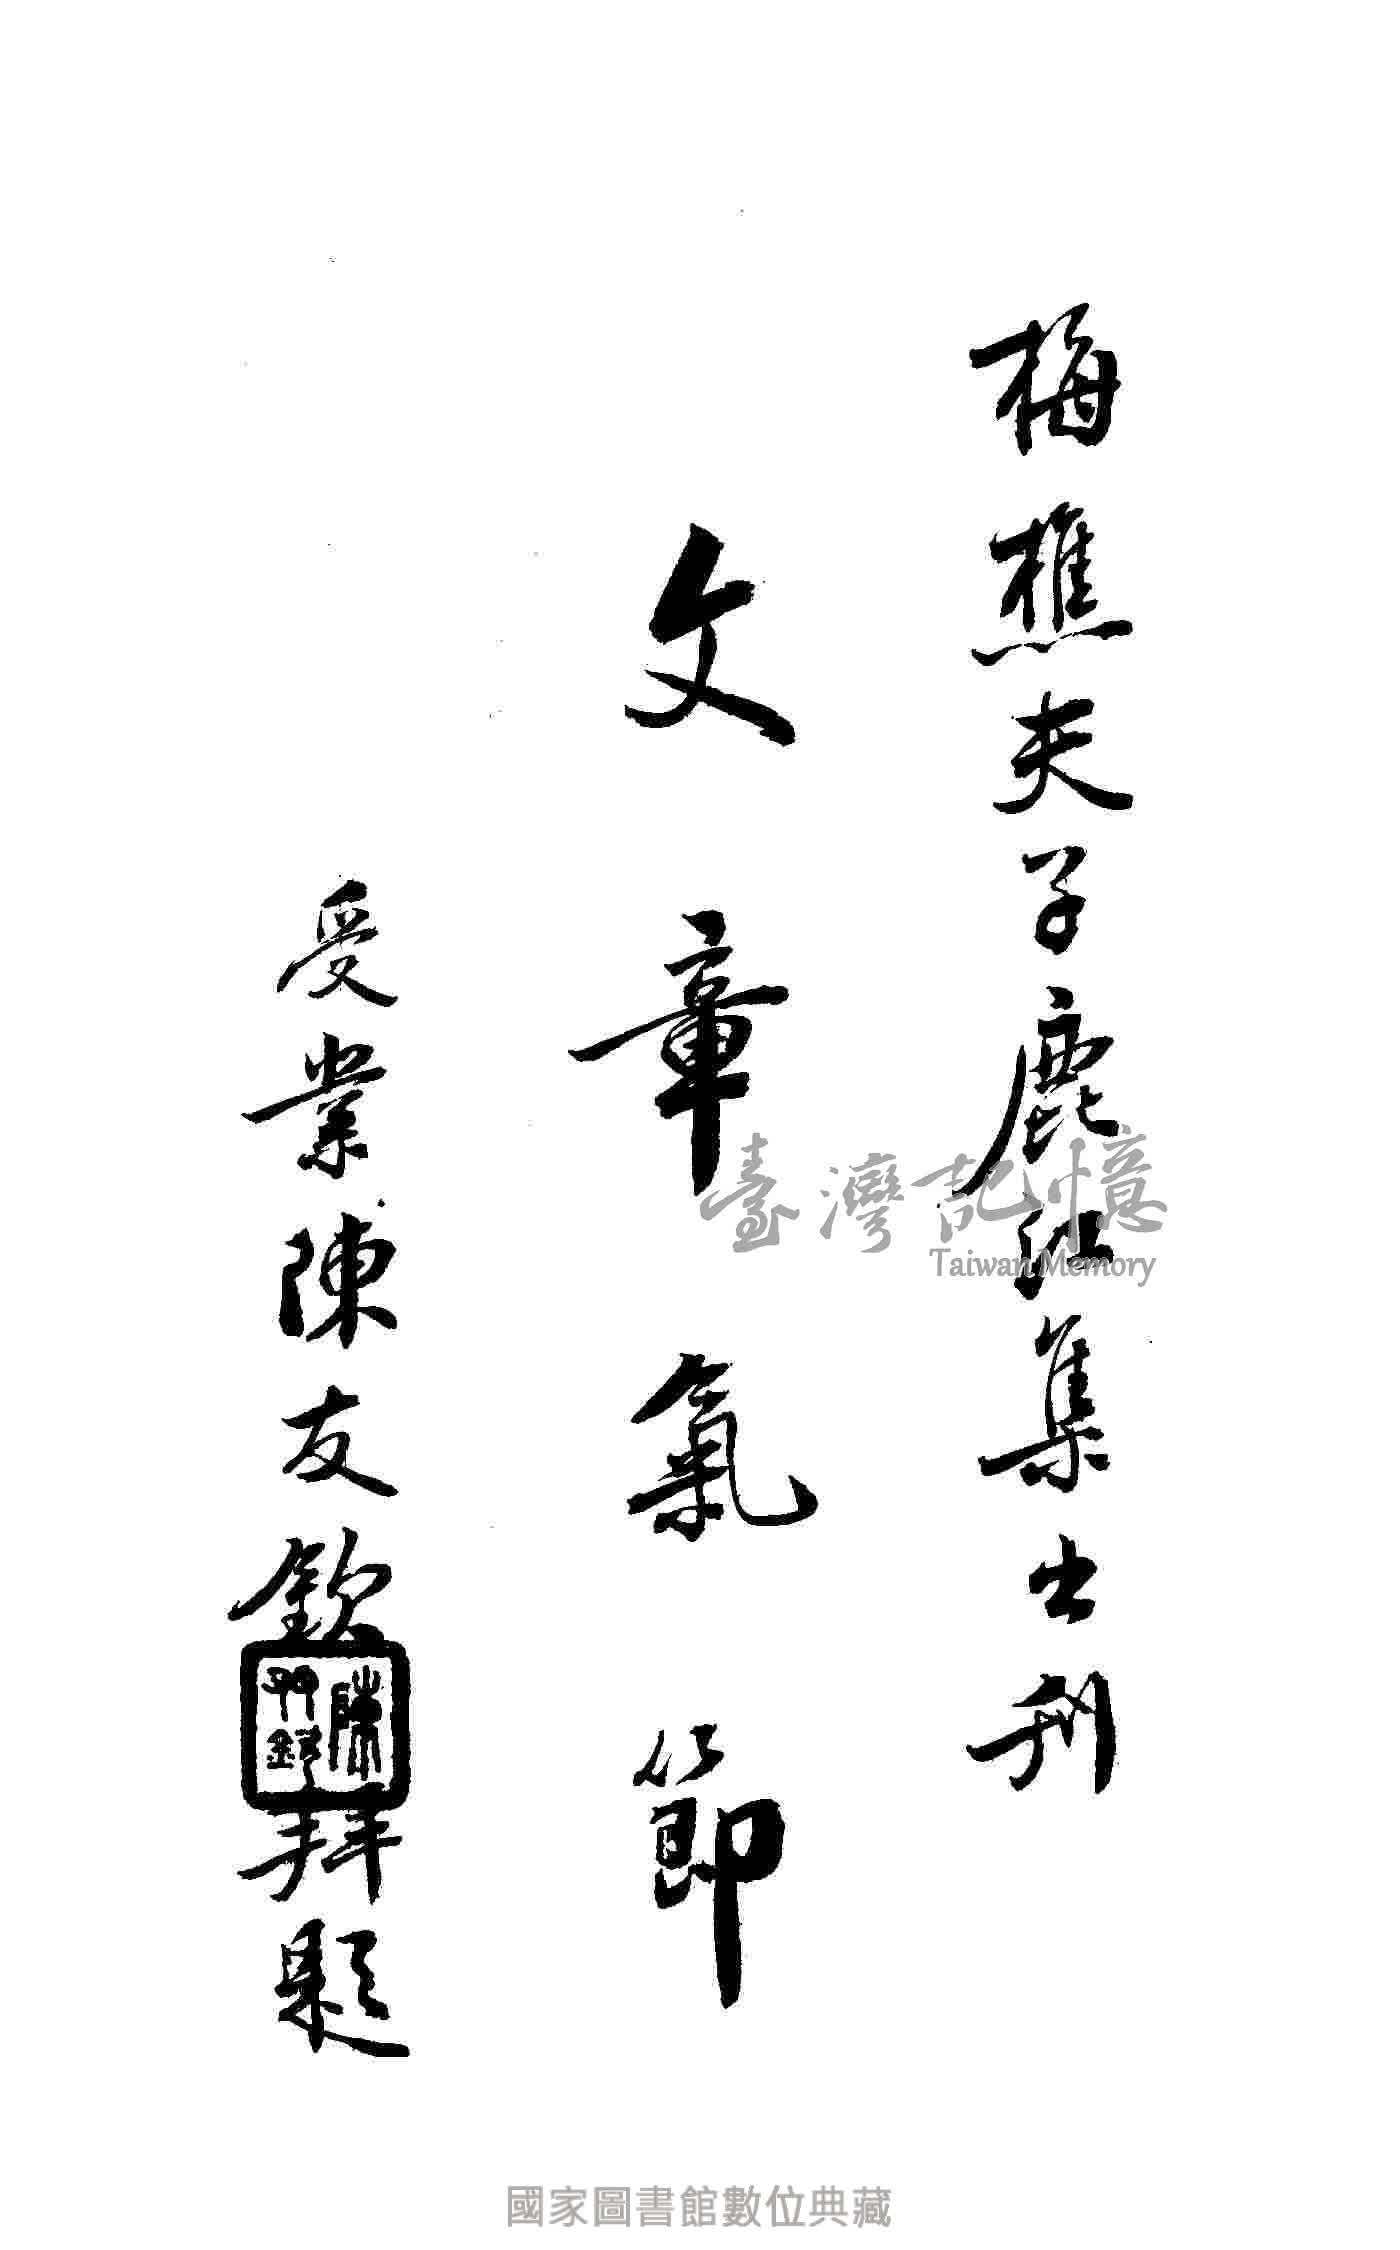 梅樵夫子鹿江集出刊
文章氣節
受業陳友欽拜題
臺灣記憶
Taiwan Memory
國家圖書館數位典藏